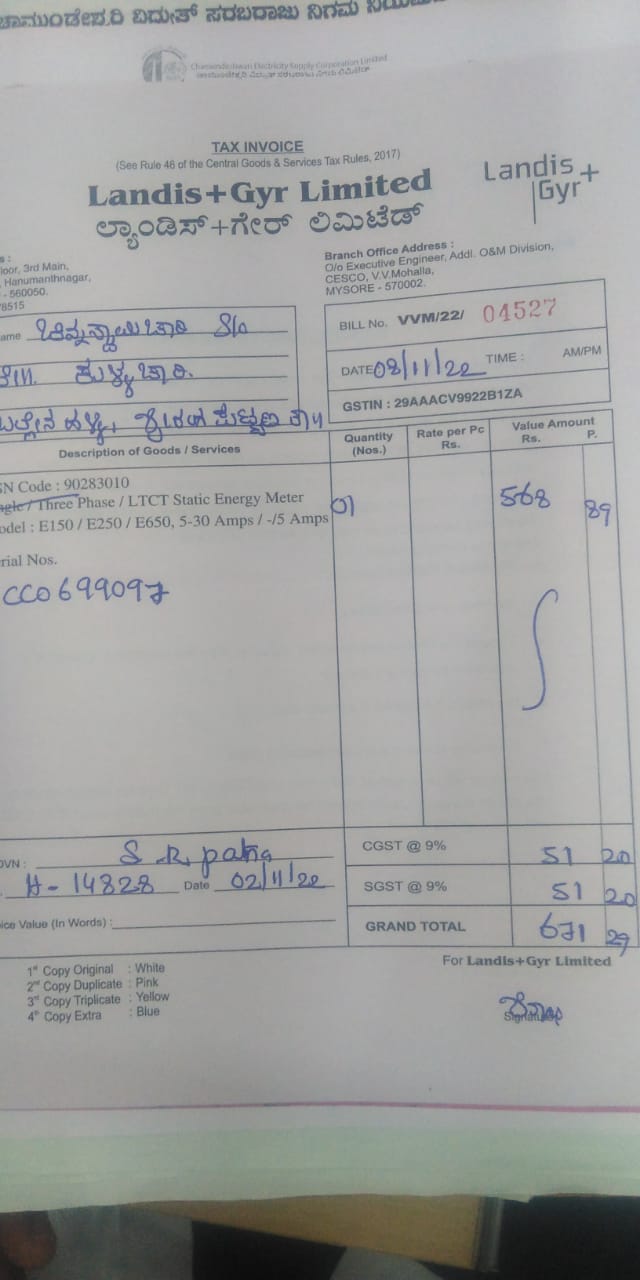 ಚಾಮುಂಡೇಶ್ವರಿ ವಿದ್ಯುತ್ ಸರಬರಾಜು ನಿಗಮ
Chamundeshwari Electricity Supply Corporation Limited
ಚಾಮುಂಡೇಶ್ವರಿ ವಿದ್ಯುತ್ ಸರಬರಾಜು ನಿಗಮ ಲಿಮಿಟೆಡ್
TAX INVOICE
(See Rule 46 of the Central Goods & Services Tax Rules, 2017)
Landis+Gyr Limited
ಲ್ಯಾಂಡಿಸ್+ಗೇರ್ ಲಿಮಿಟೆಡ್
Landis+
Gyr
loor, 3rd Main,
Hanumanthnagar,
- 560050.
8515
Branch Office Address :
O/o Executive Engineer, Addl. O&M Division,
CESCO, V.V.Mohalla,
MYSORE - 570002.
ame S/o
BILL No. VVM/22/ 04527
DATE 08/11/22 TIME : AM/PM
GSTIN : 29AAACV9922B1ZA
Description of Goods / Services Quantity (Nos.) Rate per Pc Rs. Value Amount Rs. P.
SN Code : 90283010
ngle / Three Phase / LTCT Static Energy Meter 01 568 89
odel : E150 / E250 / E650, 5-30 Amps / -/5 Amps
rial Nos.
CC0699097
DVN : S R patna
H-14828 Date 02/11/22
CGST @ 9% 51 20
SGST @ 9% 51 20
ice Value (In Words) :
GRAND TOTAL 671 29
For Landis+Gyr Limited
1st Copy Original : White
2nd Copy Duplicate : Pink
3rd Copy Triplicate : Yellow
4th Copy Extra : Blue